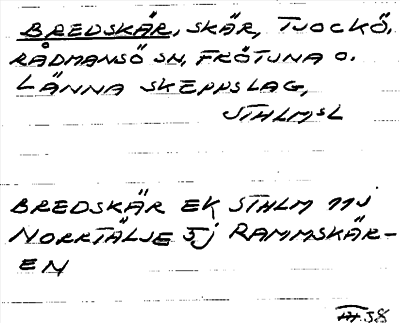 BREDSKÄR, SKÄR, TJOCKÖ,
RÅDMANSÖ SN, FRÖTUNA O.
LÄNNA SKEPPSLAG,
STHLMSL
BREDSKÄR EK STHLM 11J
NORRTÄLJE 5J RAMMSKÄR-
EN